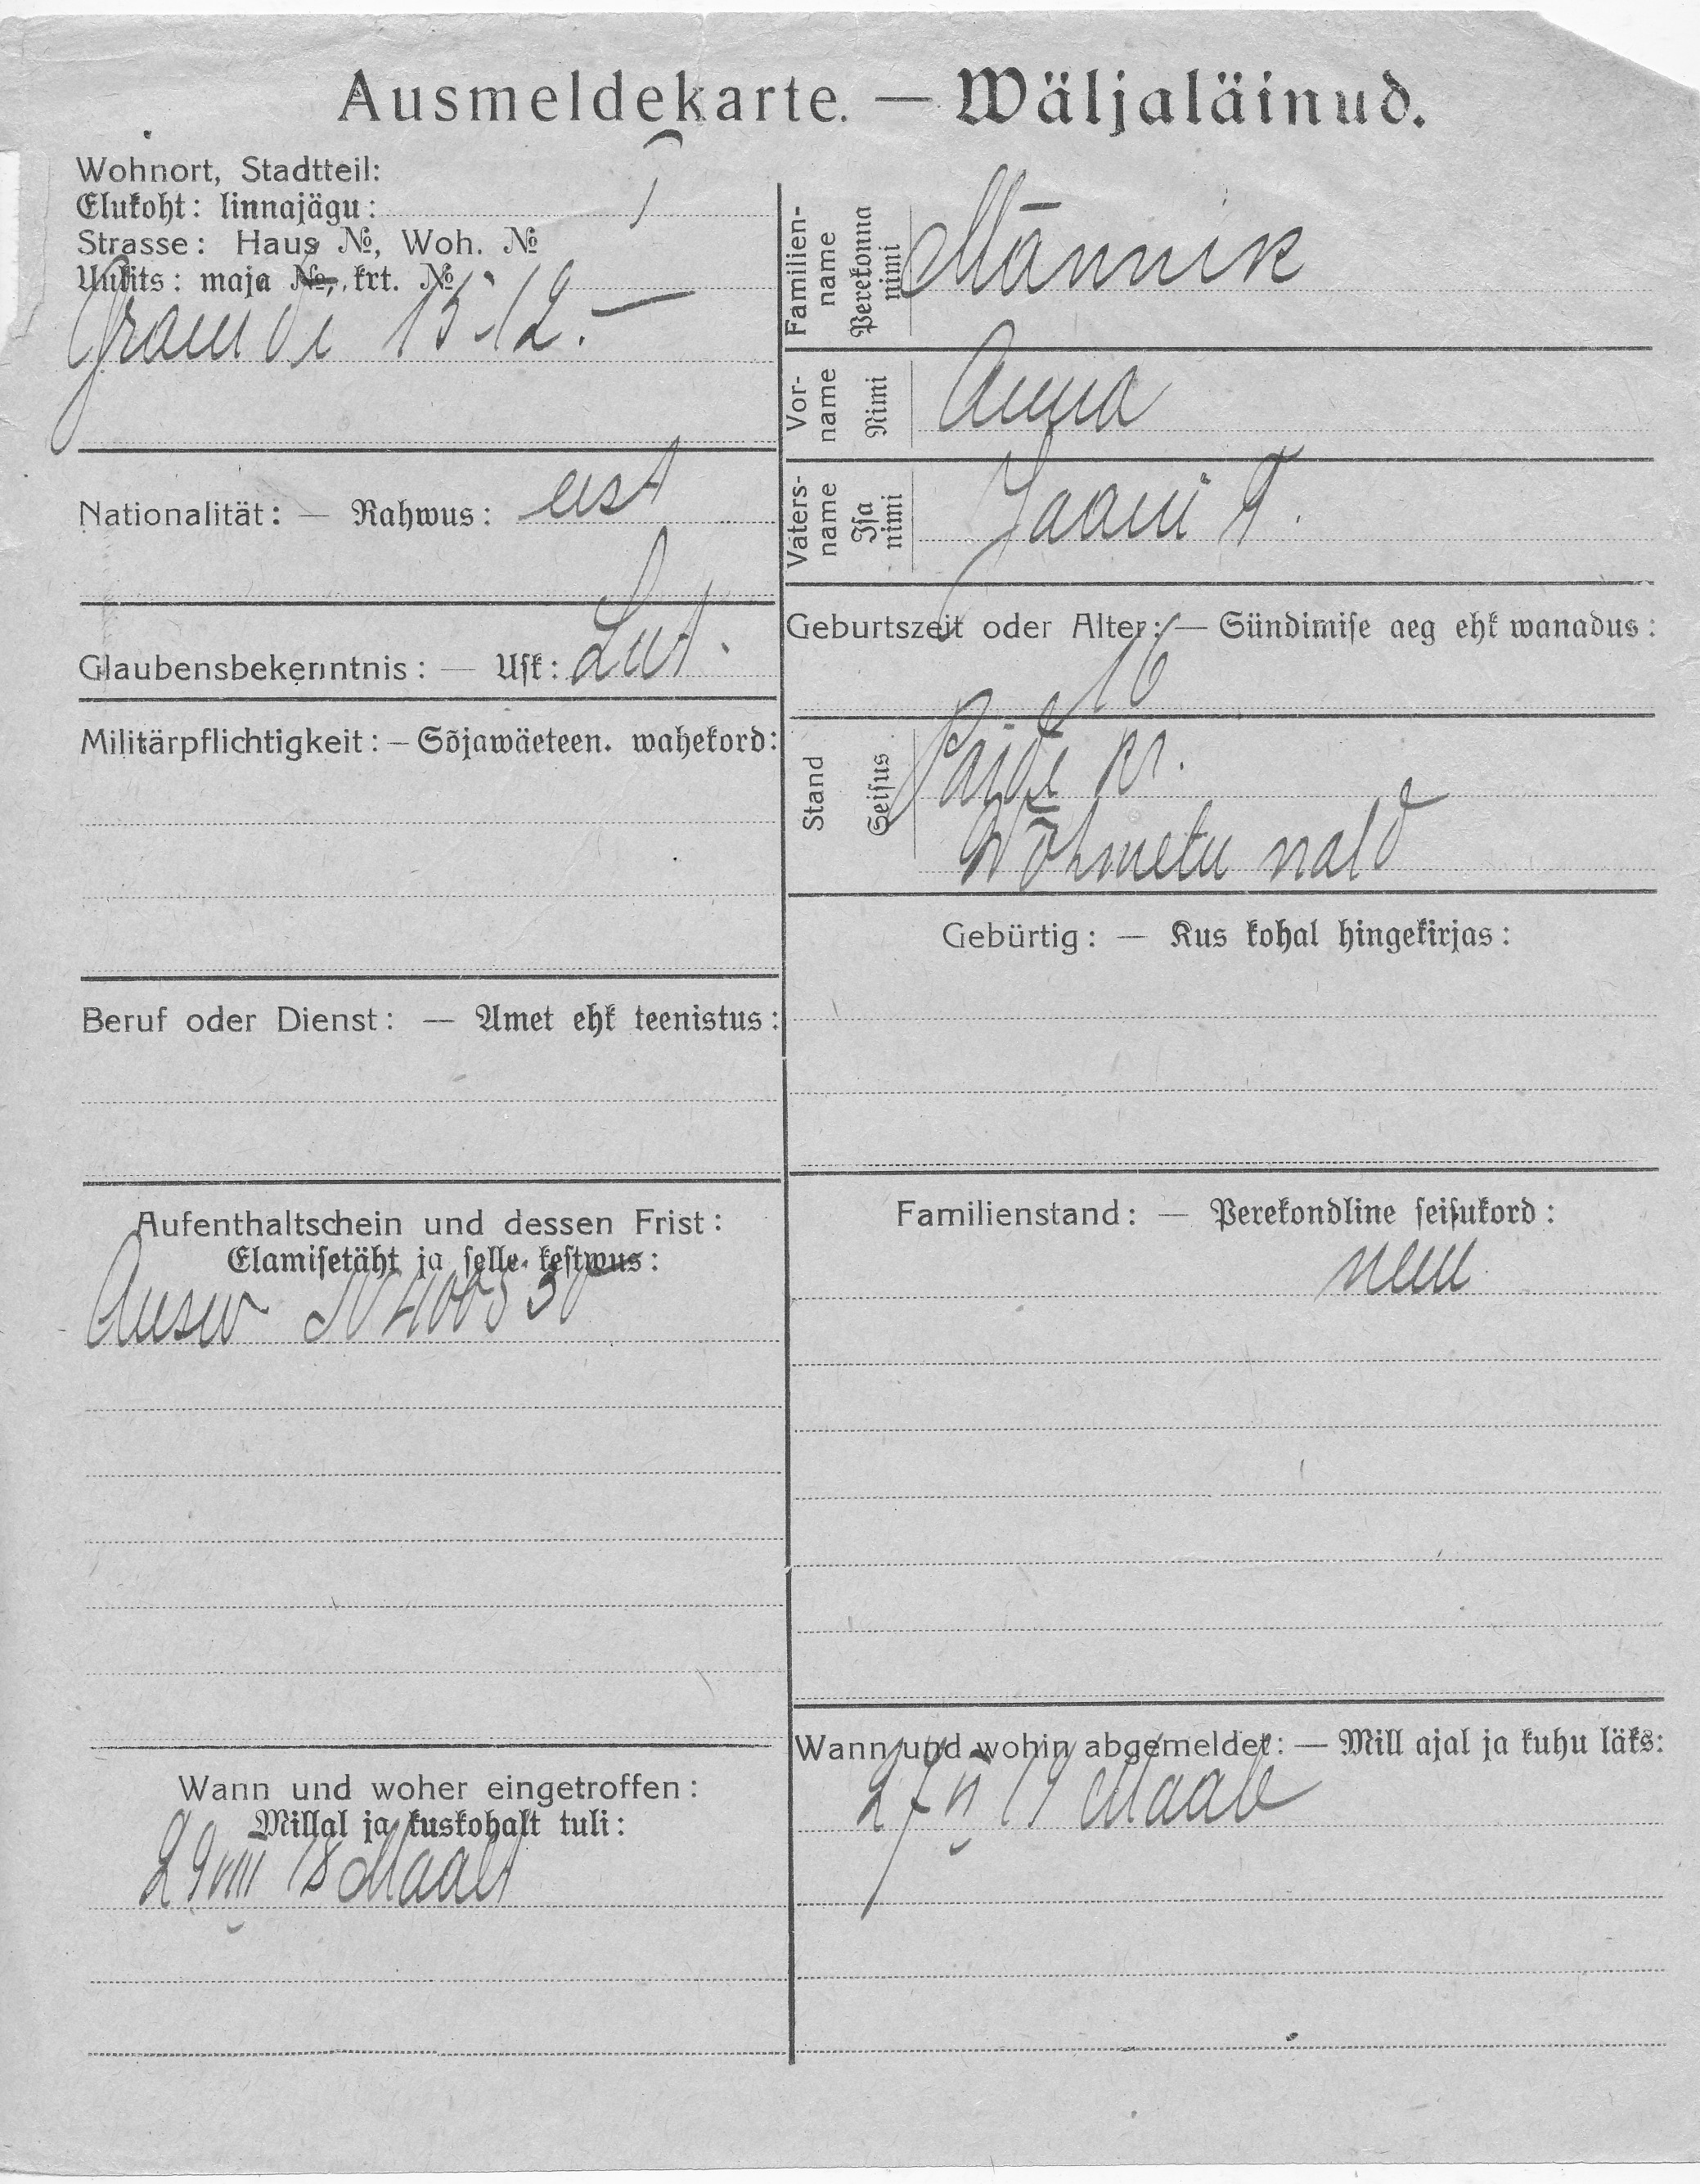 Ausmeldekarte. — Wäljaläinud.
Wohnort, Stadtteil:
Elukoht: linnajägu: I
Strasse: Haus №, Woh. №
Uulits: maja №, krt. №
15-12.—
Nationalität: — Rahwus: eest
Glaubensbekenntnis: — Usk: Lut.
Militärpflichtigkeit: — Sõjawäeteen. wahekord:
Beruf oder Dienst: — Amet ehk teenistus:
Aufenthaltschein und dessen Frist:
Elamisetäht ja selle kestwus:
Ausw N
Wann und woher eingetroffen:
Millal ja kuskohalt tuli:
29 VIII 18 Maalt
Familien-name Perekonna nimi Männik
Vor-name Nimi Anna
Vaters-name Isa nimi Jaani t.
Geburtszeit oder Alter: — Sündimise aeg ehk wanadus:
16
Stand Seisus Paide kr.
Wõhmetu vald
Gebürtig: — Kus kohal hingekirjas:
Familienstand: — Perekondline seisukord:
neiu
Wann und wohin abgemeldet: — Mill ajal ja kuhu läks:
19 Maale